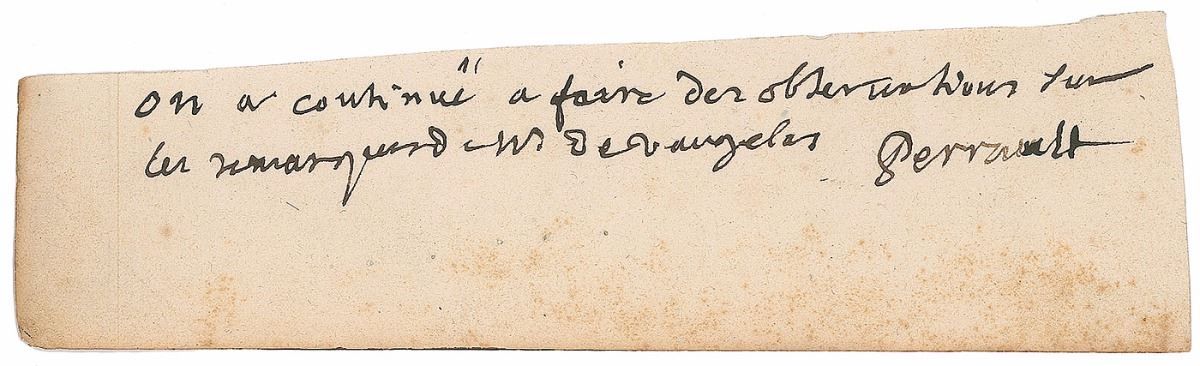 on a continué a faire des observations sur
les remarques de Mr de vaugelas Perrault